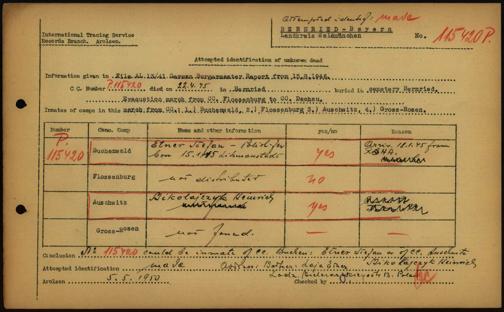 Attempted identif. made
BERNRIED - Bayern
Landkreis Waldmünchen
No. 115420 P.
International Tracing Service
Records Branch. Arolsen.
Attempted identification of unknown dead
Information given in File AL 13/41 German Burgermaster Report from 15.8.1946.
CC. Number P.115420 died on 22.4.45 in Bernried buried in cemetery Bernried.
Evacuation march from CC. Flossenburg to CC. Dachau.
Inmates of camps in march from CC.: 1.) Buchenwald, 2.) Flossenburg 3.) Auschwitz, 4.) Gross-Rosen.
Number Conc. Camp Name and other information yes/no Reason
P. 115420
Buchenwald Elner Stefan - born 15.1. Litzmannstadt yes 18.1.45 from
Flossenburg not distributed no
Auschwitz Bikolajczyk Heinrich yes
Gross-Rosen not found. — —
Conclusion No 115420 could be inmate of CC. Buchenw. Elner Stefan or of CC. Auschwitz
Attempted identification made Mother: Bikolajczyk Heinrich
Arolsen 5.5.1950 Lodz